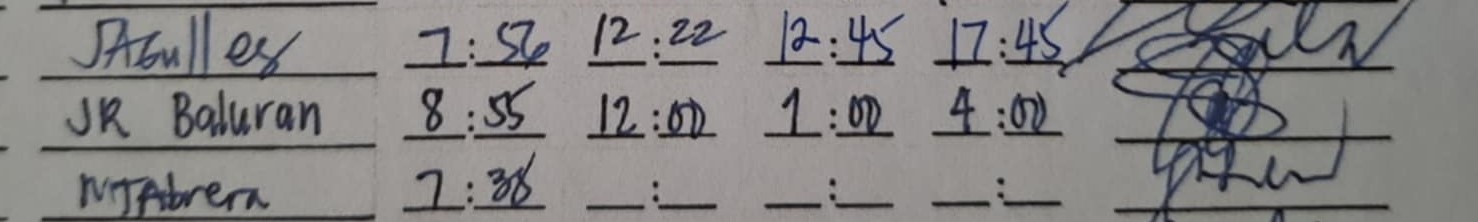 JAGulles 7:56 12:22 12:45 17:45
JR Baluran 8:55 12:00 1:00 4:00
NJAbrera 7:38 __:__ __:__ __:__